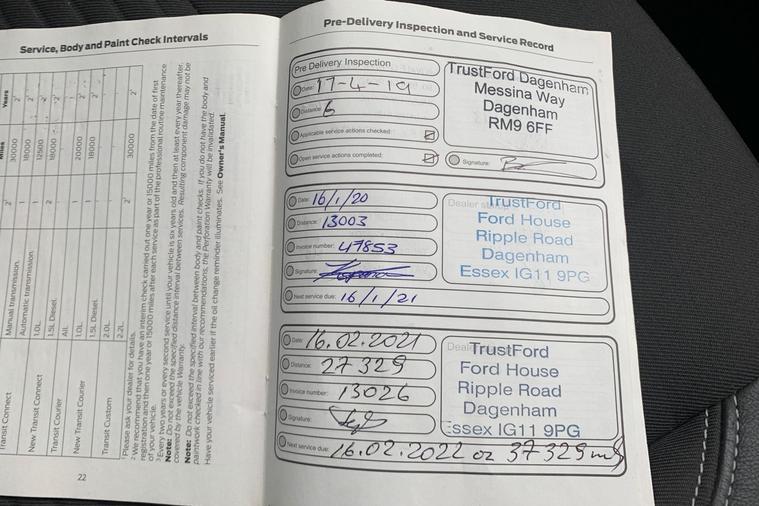 Service, Body and Paint Check Intervals
Miles Years
Transit Connect Manual transmission. 2 30000 2
Automatic transmission 1 18000 2
New Transit Connect 1.0L 1 12500
Transit Courier 1.5L Diesel 2 18000
All.
New Transit Courier 1.0L 1 20000 2
1.5L Diesel. 1 18000 2
Transit Custom 2.0L
2.2L 2 30000 2
1 Please ask your dealer for details.
2 We recommend that you have an interim check carried out one year or 15000 miles from the date of first
registration and then one year or 15000 miles after each service as part of the professional routine maintenance
of your vehicle.
3 Every two years or every second service until your vehicle is six years old and then at least every year thereafter.
Note: Do not exceed the specified distance interval between services. Resulting component damage may not be
covered by the vehicle Warranty.
Note: Do not exceed the specified interval between body and paint checks. If you do not have the body and
paintwork checked in line with our recommendations, the Perforation Warranty will be invalidated.
Have your vehicle serviced earlier if the oil change reminder illuminates. See Owner's Manual.
22
Pre-Delivery Inspection and Service Record
Pre Delivery Inspection
Date: 17-4-19
Distance: 6
Applicable service actions checked:
Open service actions completed:
TrustFord Dagenham
Messina Way
Dagenham
RM9 6FF
Signature:
Date: 16/1/20
Distance: 13003
Invoice number: 47853
Signature:
Next service due: 16/1/21
Dealer
TrustFord
Ford House
Ripple Road
Dagenham
Essex IG11 9PG
Date: 16.02.2021
Distance: 27329
Invoice number: 13026
Signature:
Next service due: 16.02.2022 or 37329 mls
Deal
TrustFord
Ford House
Ripple Road
Dagenham
Essex IG11 9PG